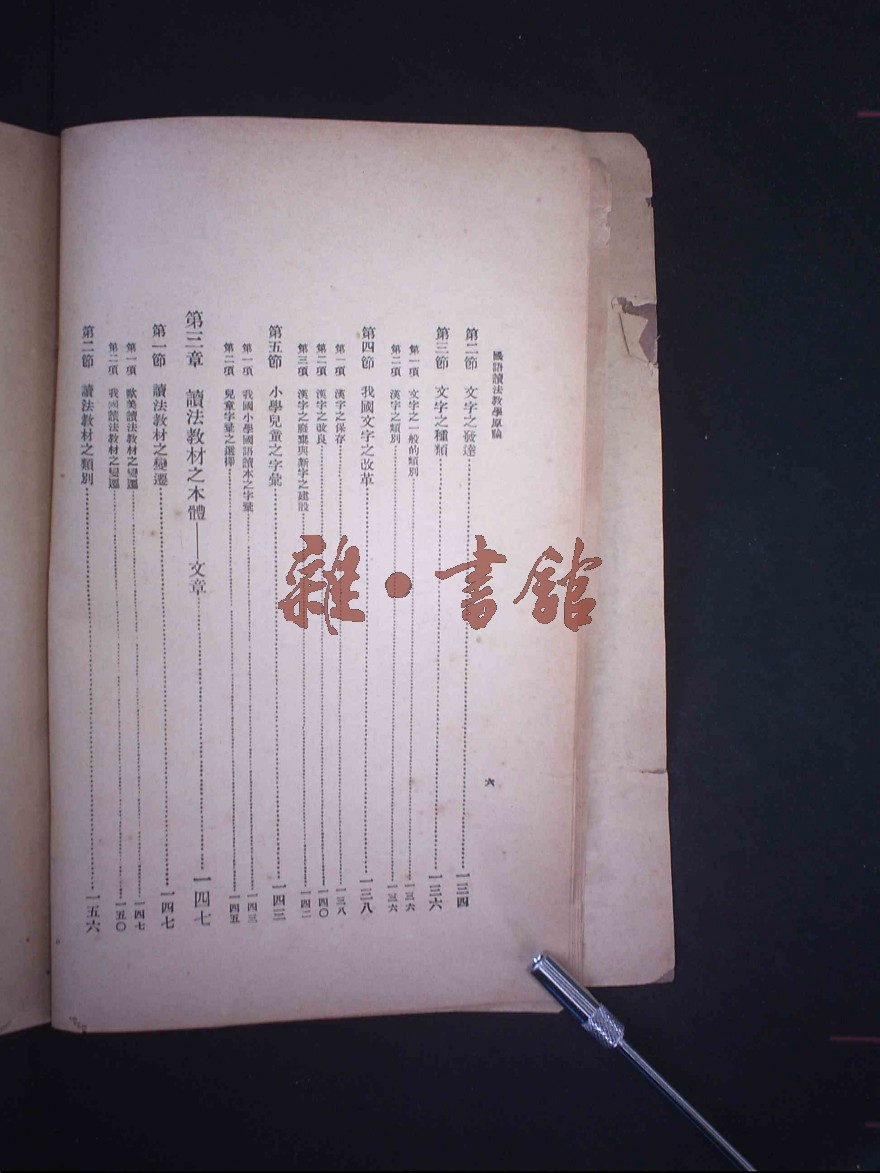 國語讀法教學原論
六
第二節 文字之發達……一三四
第三節 文字之種類……一三六
第一項 文字之一般的類別……一三六
第二項 漢字之類別……一三六
第四節 我國文字之改革……一三八
第一項 漢字之保存……一三八
第二項 漢字之改良……一四〇
第三項 漢字之廢棄與新字之建設……一四二
第五節 小學兒童之字彙……一四三
第一項 我國小學國語讀本之字彙……一四三
第二項 兒童字彙之選擇……一四五
第三章 讀法教材之本體——文章……一四七
第一節 讀法教材之變遷……一四七
第一項 歐美讀法教材之變遷……一四七
第二項 我國讀法教材之變遷……一五〇
第二節 讀法教材之類別……一五六
雜·書館